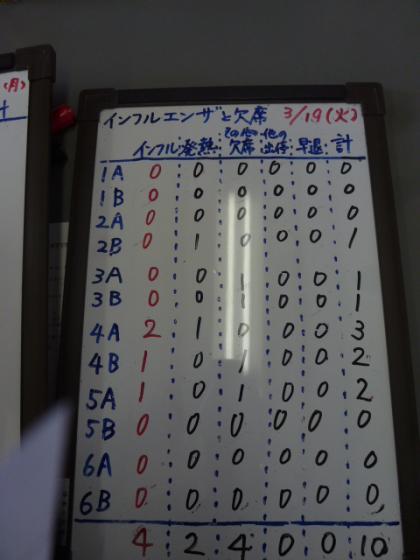 (月)
計
インフルエンザと欠席 3/19(火)
インフル 発熱 その他の欠席 他の出停 早退 計
1A 0 0 0 0 0 0
1B 0 0 0 0 0 0
2A 0 0 0 0 0 0
2B 0 1 0 0 0 1
3A 0 0 1 0 0 1
3B 0 0 1 0 0 1
4A 2 1 0 0 0 3
4B 1 0 1 0 0 2
5A 1 0 1 0 0 2
5B 0 0 0 0 0 0
6A 0 0 0 0 0 0
6B 0 0 0 0 0 0
4 2 4 0 0 10